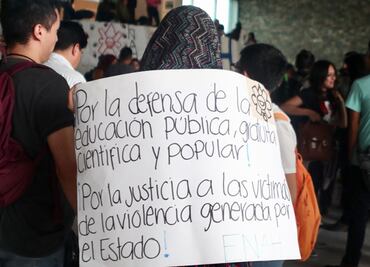 Por la defensa de la
educación pública, gratuita
científica y popular!
¡Por la justicia a las víctimas
de la violencia generada por
el Estado!
ENAH